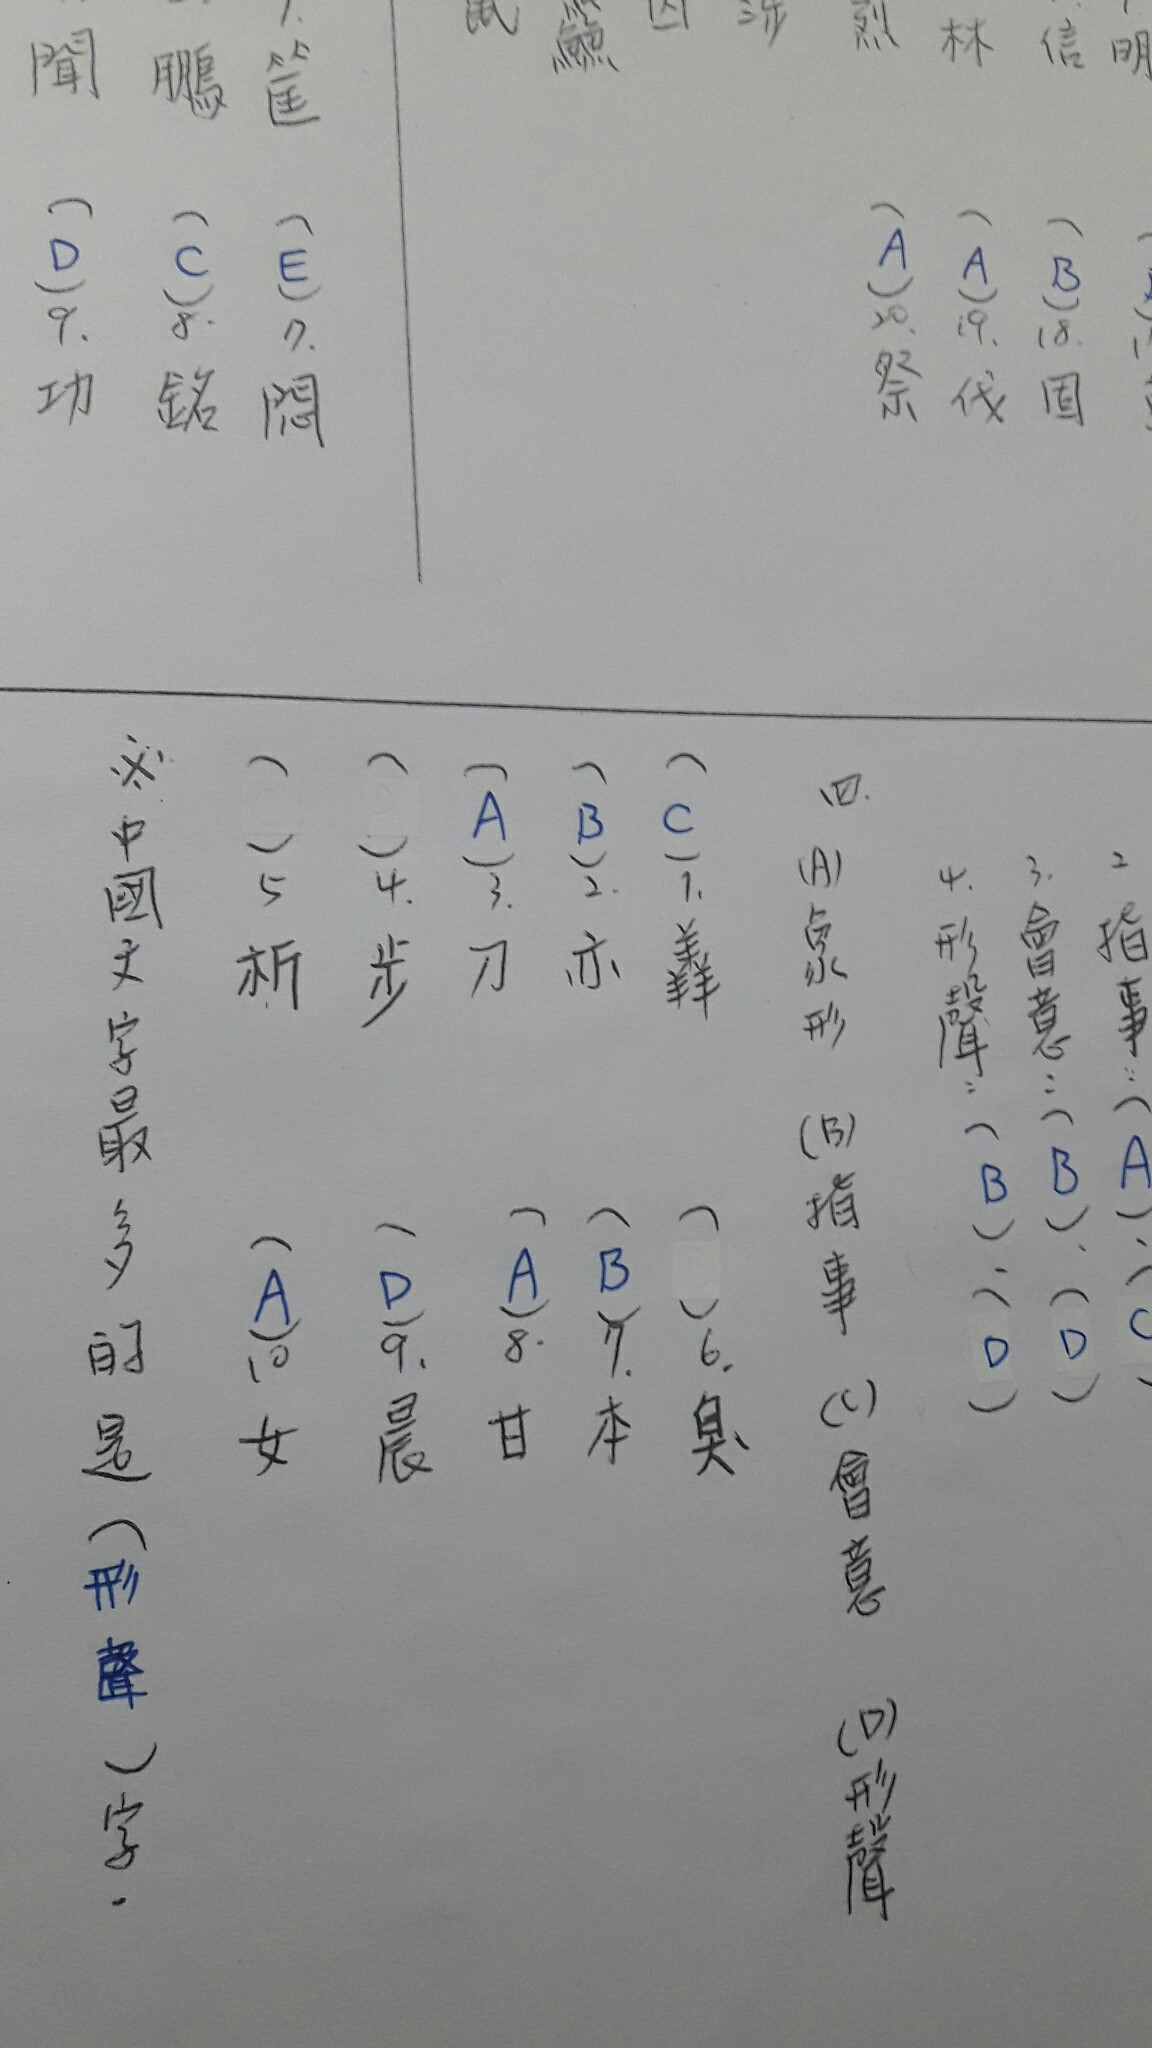 明
信
林
烈
涉
囚
鱻
鼠
(B)18. 固
(A)19. 伐
(A)20. 祭
筐
鵬
聞
(E)7. 悶
(C)8. 銘
(D)9. 功
2 指事：(A)、(C)
3. 會意：(B)、(D)
4. 形聲：(B)、(D)
四. (A)象形 (B)指事 (C)會意 (D)形聲
(C)1. 羴
(B)2. 亦
(A)3. 刀
( )4. 步
( )5 析
( )6. 臭
(B)7. 本
(A)8. 甘
(D)9. 晨
(A)10 女
※中國文字最多的是(形聲)字.